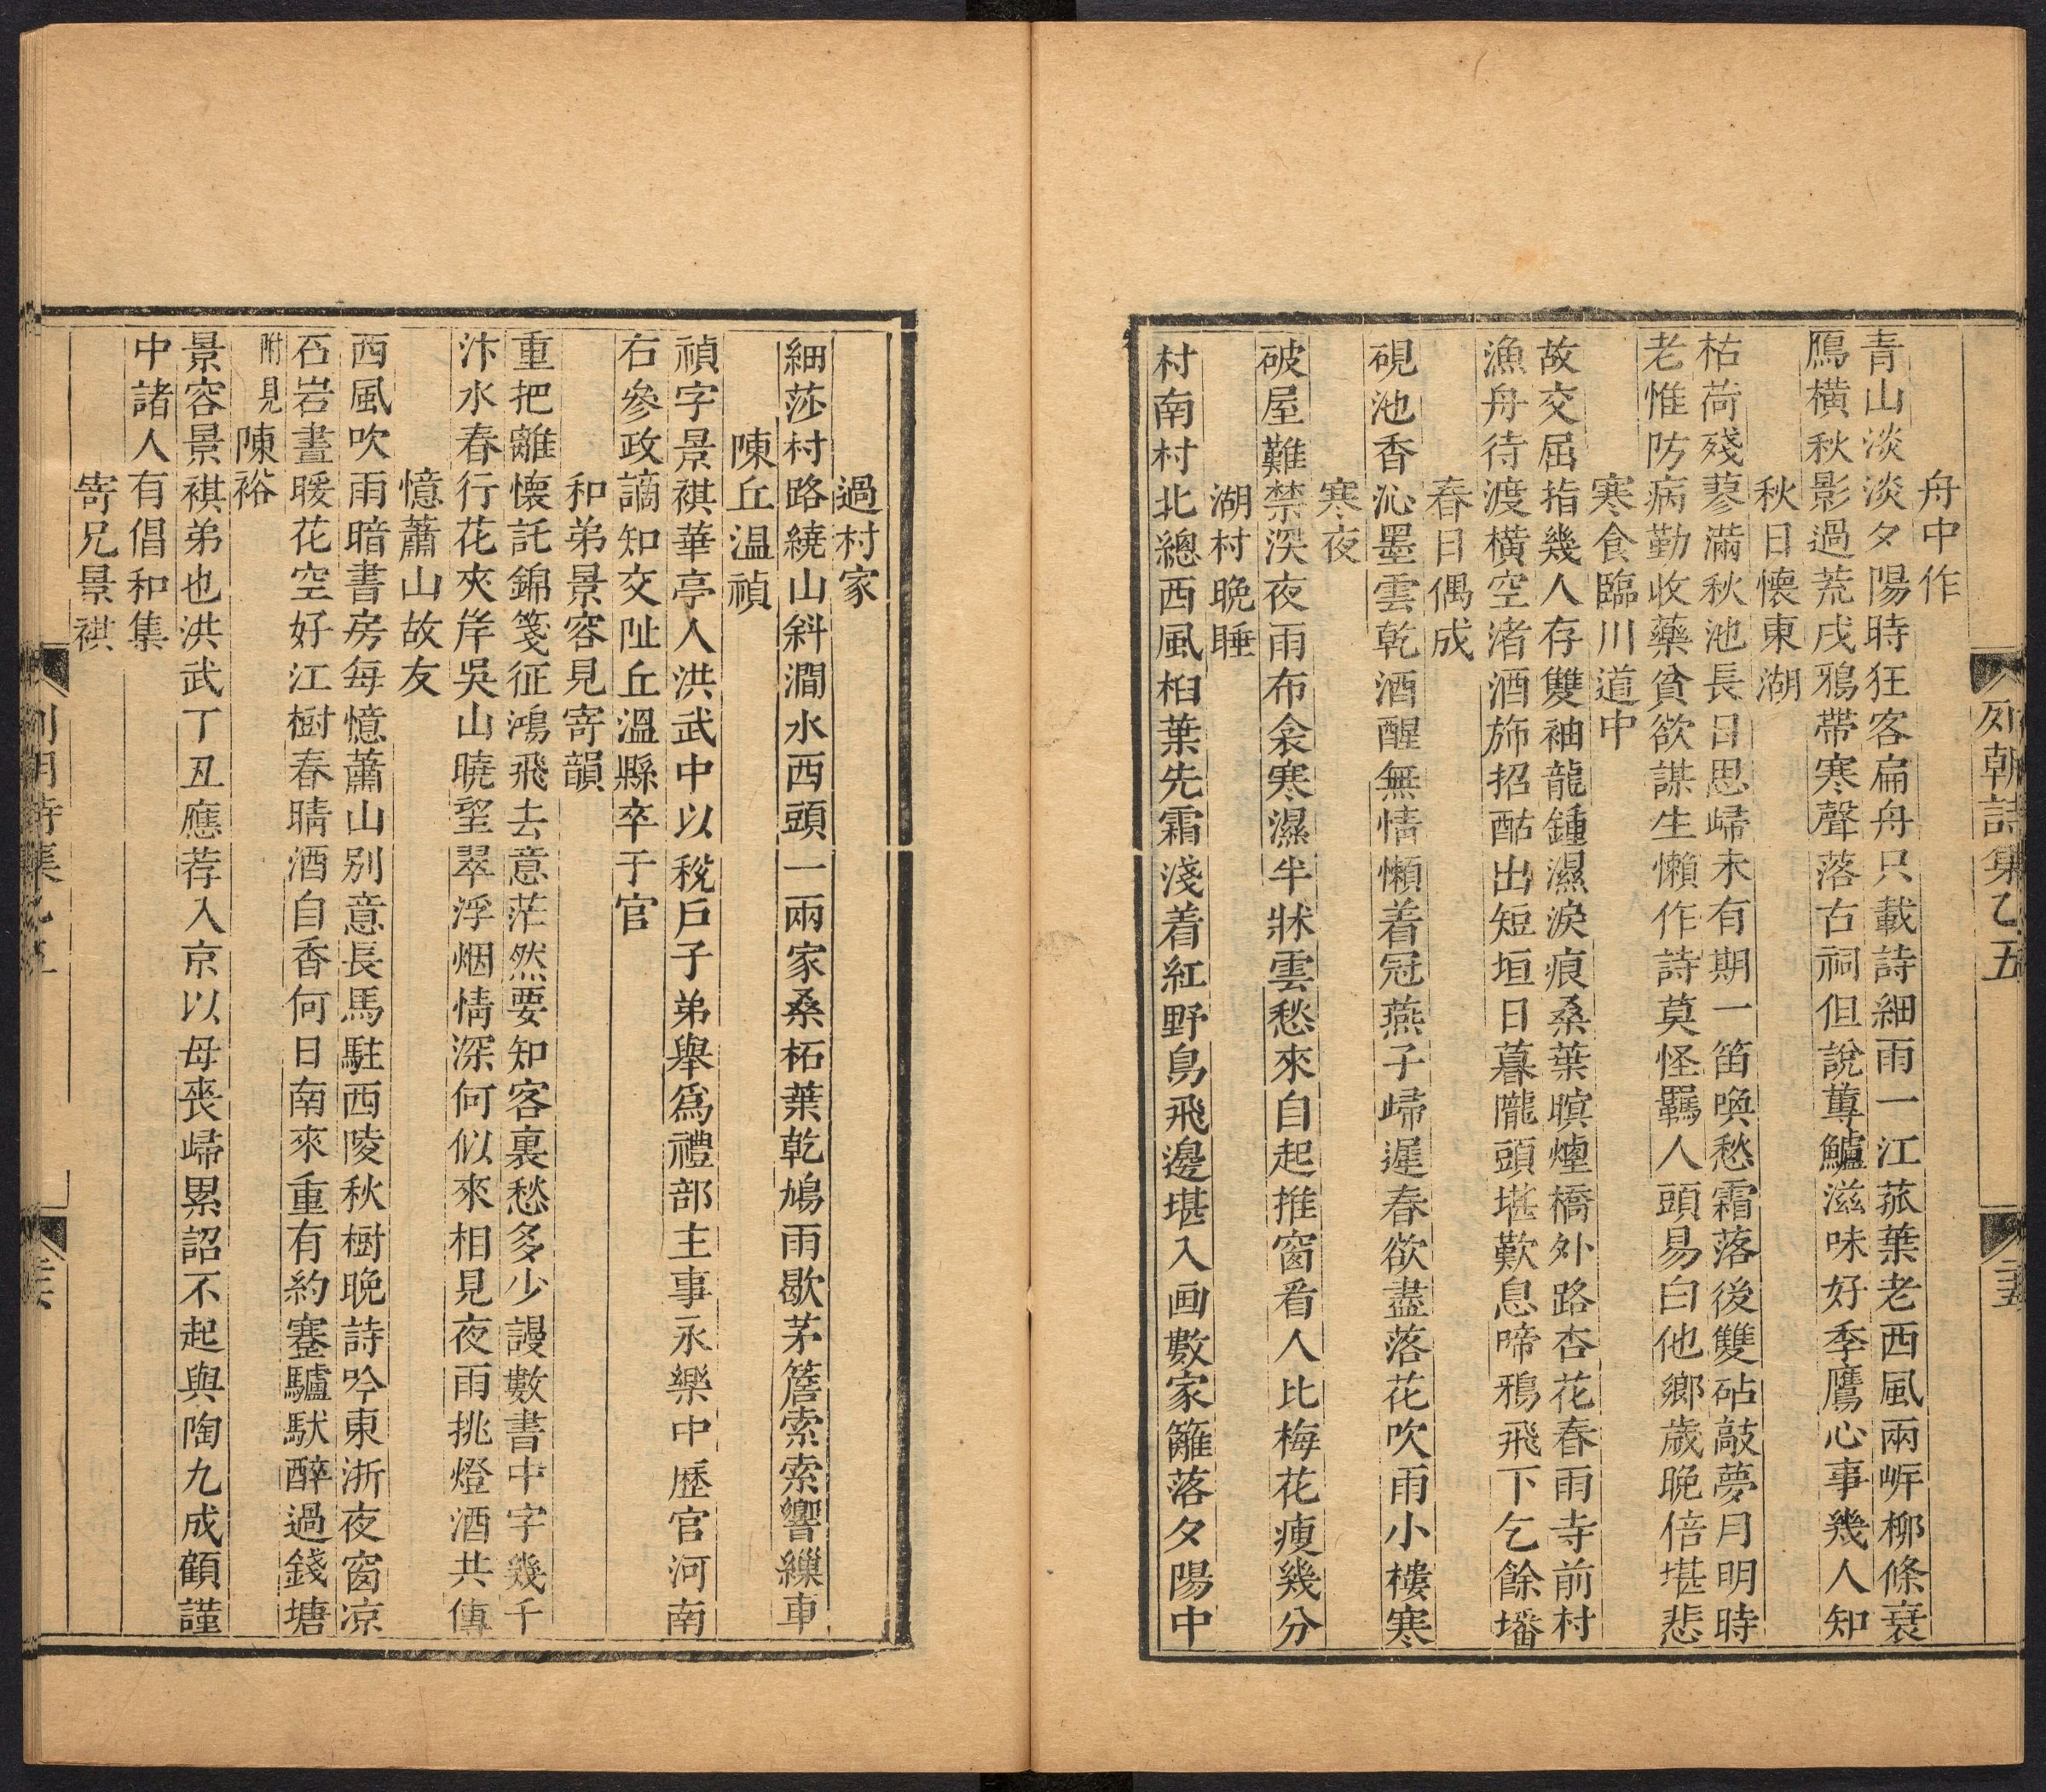 列朝詩集乙五
舟中作
青山淡淡夕陽時狂客扁舟只載詩細雨一江菰葉老西風兩岸柳條衰
鴈橫秋影過荒戍鴉帶寒聲落古祠但說蓴鱸滋味好季鷹心事幾人知
秋日懷東湖
枯荷殘蓼滿秋池長日思歸未有期一笛喚愁霜落後雙砧敲夢月明時
老惟防病勤收藥貧欲謀生懶作詩莫怪羈人頭易白他鄉歲晚倍堪悲
寒食臨川道中
故交屈指幾人存雙袖龍鍾濕淚痕桑葉暝煙橋外路杏花春雨寺前村
漁舟待渡橫空渚酒斾招酤出短垣日暮隴頭堪歎息啼鴉飛下乞餘墦
春日偶成
硯池香沁墨雲乾酒醒無情懶着冠燕子歸遲春欲盡落花吹雨小樓寒
寒夜
破屋難禁深夜雨布衾寒濕半牀雲愁來自起推窗看人比梅花瘦幾分
湖村晚睡
村南村北總西風桕葉先霜淺着紅野鳥飛邊堪入画數家籬落夕陽中
過村家
細莎村路繞山斜澗水西頭一兩家桑柘葉乾鳩雨歇茅簷索索響繅車
陳丘溫禎
禎字景祺華亭人洪武中以稅戶子弟舉爲禮部主事永樂中歷官河南
右參政謫知交阯丘溫縣卒于官
和弟景容見寄韻
重把離懷託錦箋征鴻飛去意茫然要知客裏愁多少謾數書中字幾千
汴水春行花夾岸吳山曉望翠浮烟情深何似來相見夜雨挑燈酒共傳
憶蕭山故友
西風吹雨暗書房每憶蕭山別意長馬駐西陵秋樹晚詩吟東浙夜窗凉
石岩晝暖花空好江樹春晴酒自香何日南來重有約蹇驢馱醉過錢塘
附見陳裕
景容景祺弟也洪武丁丑應荐入京以母喪歸累詔不起與陶九成顧謹
中諸人有倡和集
寄兄景祺